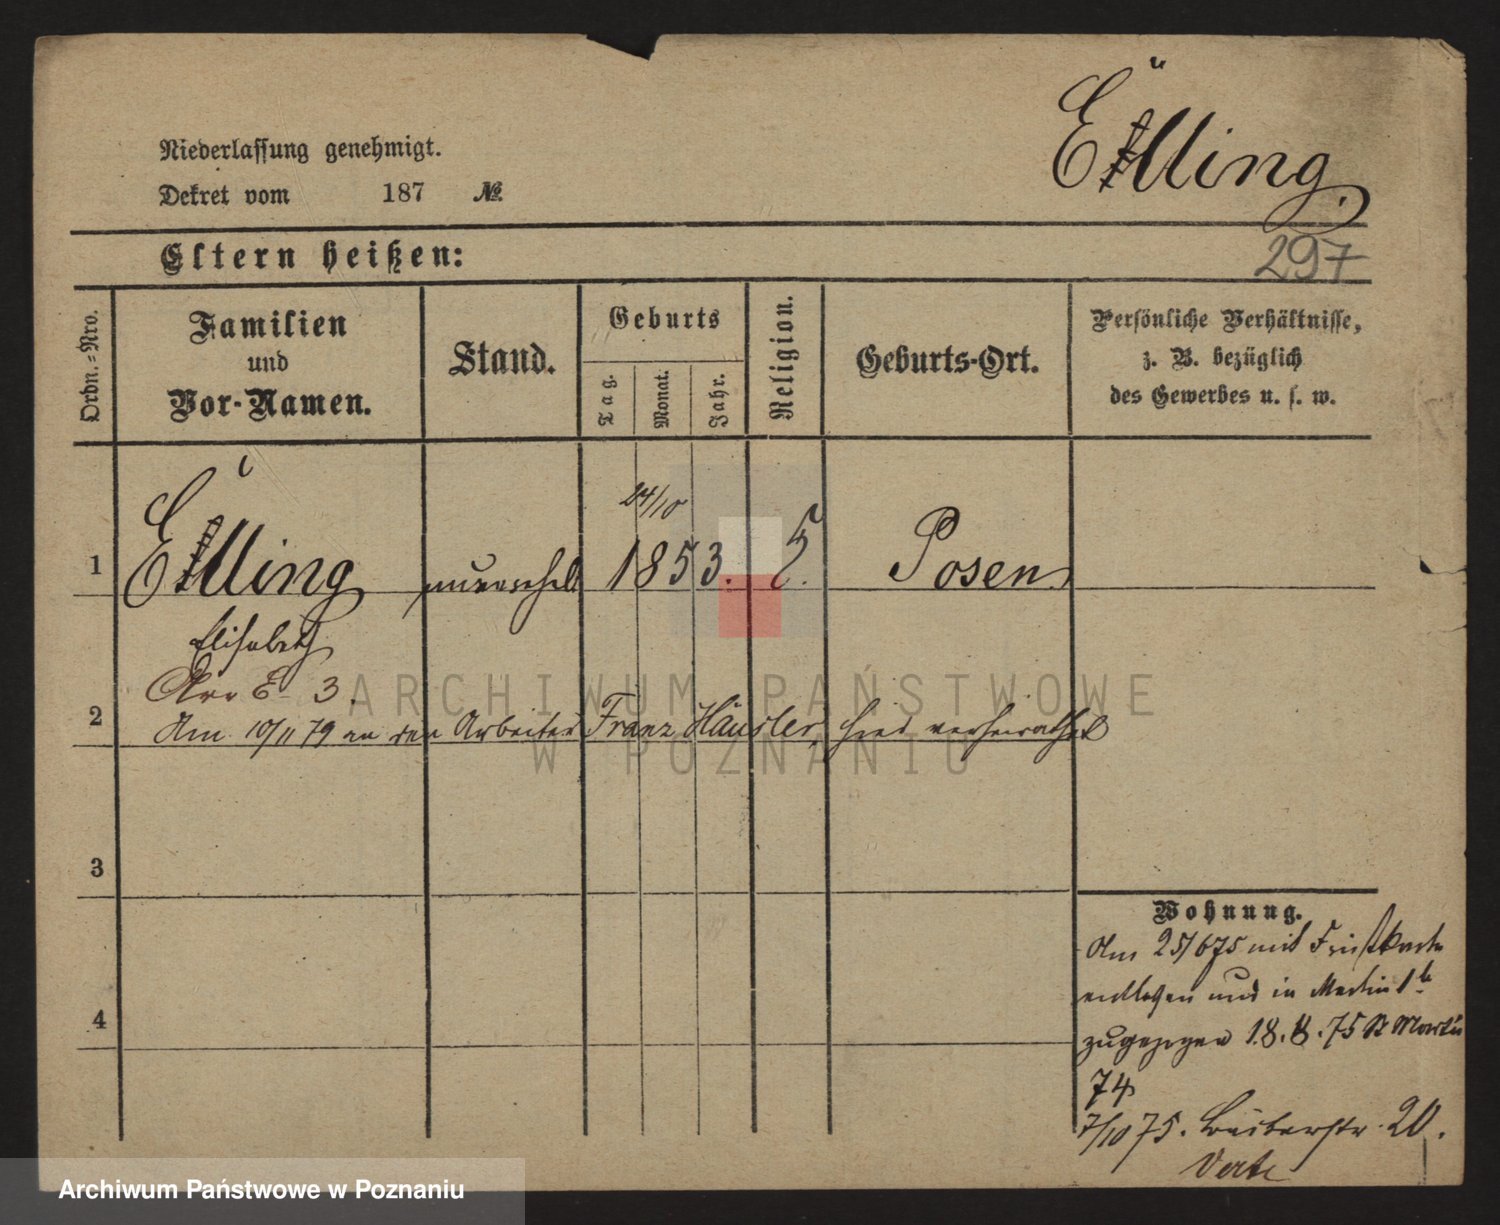 Niederlassung genehmigt.
Dekret vom 187 №
297
Eltern heißen:
Ordn.=Nro.
Familien
und
Vor-Namen.
Stand.
Geburts
Tag.
Monat.
Jahr.
Religion.
Geburts-Ort.
Persönliche Verhältnisse,
z. B. bezüglich
des Gewerbes u. s. w.
24/10
1 unverehel 1853. Posen
Elisabeth
E 3.
2 Am 10/11 79 an den Arbeiter Franz Häusler, hier verheirathet
3
Wohnung.
Am 25/6 75 mit
entlassen und in Martin 1
4
zugezogen 18.8.75 St Martin
74
7/10 75. 20.
ARCHIWUM PAŃSTWOWE
W POZNANIU
Archiwum Państwowe w Poznaniu